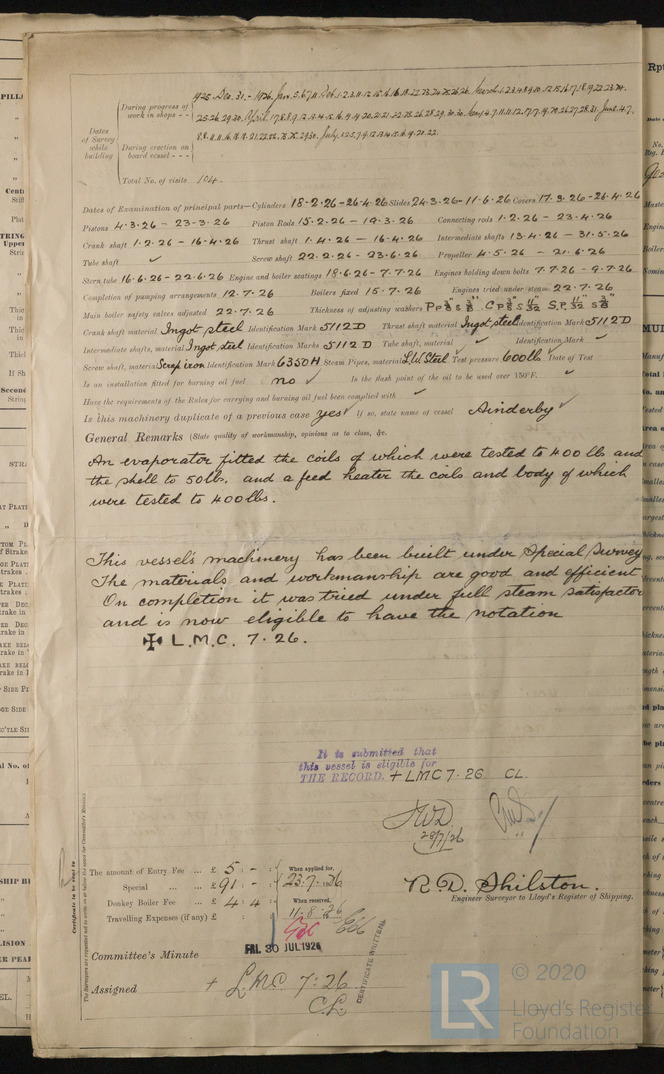 1925. Dec. 31. - 1926. Jan. 5. 6. 7. 11. Feb. 1. 2. 3. 11. 12. 15. 16. 18. 19. 22. 23. 24. 25. 26. March 1. 2. 3. 4. 8. 9. 10. 12. 15. 16. 17. 18. 19. 22. 23. 24.
During progress of
work in shops - -
25. 26. 29. 30. April 1. 7. 8. 9. 12. 13. 14. 15. 16. 19. 20. 21. 22. 23. 26. 28. 29. 30. May 4. 7. 11. 12. 17. 19. 20. 26. 27. 28. 31. June 4. 7.
Dates
of Survey
while
building
During erection on
board vessel - - -
July. 1. 2. 5. 7. 9. 12. 13. 14. 15. 16. 19. 21. 22.
Total No. of visits 104.
Dates of Examination of principal parts—Cylinders 18-2-26-26-4-26 Slides 24-3-26-11-6-26 Covers 17-3-26-26-4-26
Pistons 4-3-26 - 23-3-26 Piston Rods 15-2-26 - 19-3-26 Connecting rods 1-2-26 - 23-4-26
Crank shaft 1-2-26 - 16-4-26 Thrust shaft 1-4-26 - 16-4-26 Intermediate shafts 13-4-26 - 31-5-26
Tube shaft ✓ Screw shaft 22-2-26 - 23-6-26 Propeller 4-5-26 - 21-6-26
Stern tube 16-6-26 - 22-6-26 Engine and boiler seatings 18-6-26 - 7-7-26 Engines holding down bolts 7-7-26 - 9-7-26
Completion of pumping arrangements 12-7-26 Boilers fixed 15-7-26 Engines tried under steam 22-7-26
Main boiler safety valves adjusted 22-7-26 Thickness of adjusting washers
Crank shaft material Ingot steel Identification Mark 5112D Thrust shaft material Ingot steel Identification Mark 5112D
Intermediate shafts, material Ingot steel Identification Marks 5112D Tube shaft, material ✓ Identification Mark ✓
Screw shaft, material Scrap iron Identification Mark 6350H Steam Pipes, material L.W. Steel Test pressure 600 lb ✓ Date of Test
Is an installation fitted for burning oil fuel no ✓ Is the flash point of the oil to be used over 150°F. ✓
Have the requirements of the Rules for carrying and burning oil fuel been complied with ✓
Is this machinery duplicate of a previous case yes ✓ If so, state name of vessel Ainderby ✓
General Remarks (State quality of workmanship, opinions as to class, &c.
An evaporator fitted the coils of which were tested to 400 lb and
the shell to 50lb. and a feed heater the coils and body of which
were tested to 400lbs.
This vessel's machinery has been built under Special Survey
The materials and workmanship are good and efficient
On completion it was tried under full steam satisfactor
and is now eligible to have the notation
✠ L.M.C. 7-26.
It is submitted that
this vessel is eligible for
THE RECORD. + LMC 7-26 CL.
28/7/26
The amount of Entry Fee ... £ 5 : - :
Special ... ... £ 91 : - :
Donkey Boiler Fee ... £ 4 : 4 :
Travelling Expenses (if any) £ : :
When applied for,
23.7.1926
When received,
11.8.26
R.D. Shilston.
Engineer Surveyor to Lloyd's Register of Shipping.
Committee's Minute FRI. 30 JUL 1926
Assigned + L.M.C. 7:26
C.L.
CERTIFICATE WRITTEN
Certificate to be sent to
LR
© 2020
Lloyd's Register
Foundation